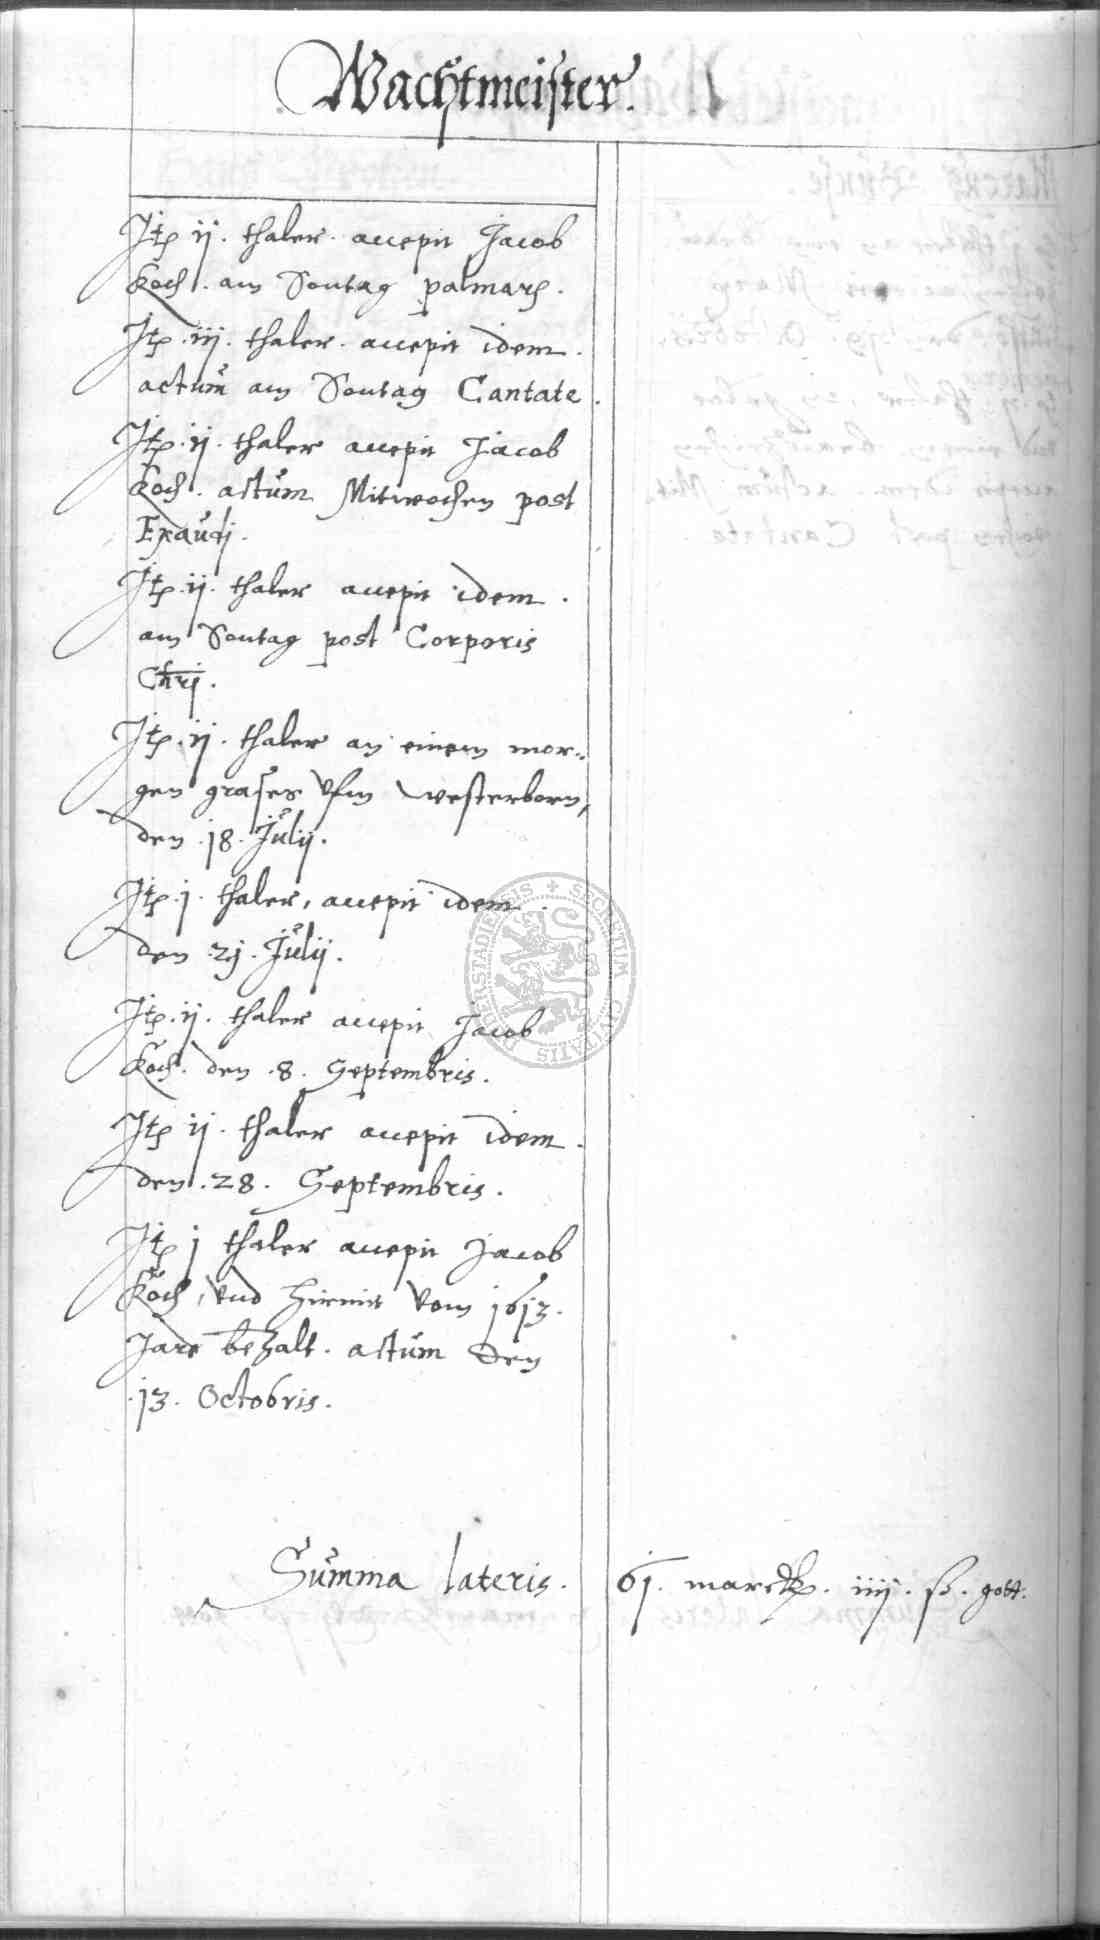 Wachtmeister.
Itꝑ ij. thaler. accepit Jacob
Koch. am Sontag palmarꝫ.
Itꝑ. iij. thaler. accepit idem.
actum am Sontag Cantate.
Itꝑ. ij. thaler accepit Jacob
Koch. actum Mitwochen post
Exaudi.
Itꝑ. ij. thaler accepit idem.
am Sontag post Corporis
Chri̅.
Itꝑ. ij. thaler an einem mor„
gen grases vfm westerborn,
den .18. Julij.
Itꝑ. j. thaler, accepit idem.
den .21. Julij.
Itꝑ. ij. thaler accepit Jacob
Koch. den .8. Septembris.
Itꝑ ij. thaler accepit idem.
den .28. Septembris.
Itꝑ j thaler accepit Jacob
Koch, vnd hiemit vom 1613.
Jare bezalt. actum den
.13. Octobris.
Summa lateris. 61. marck. iiij. ß. gott:
SECRETUM CIVITATIS DUDERSTADIENSIS